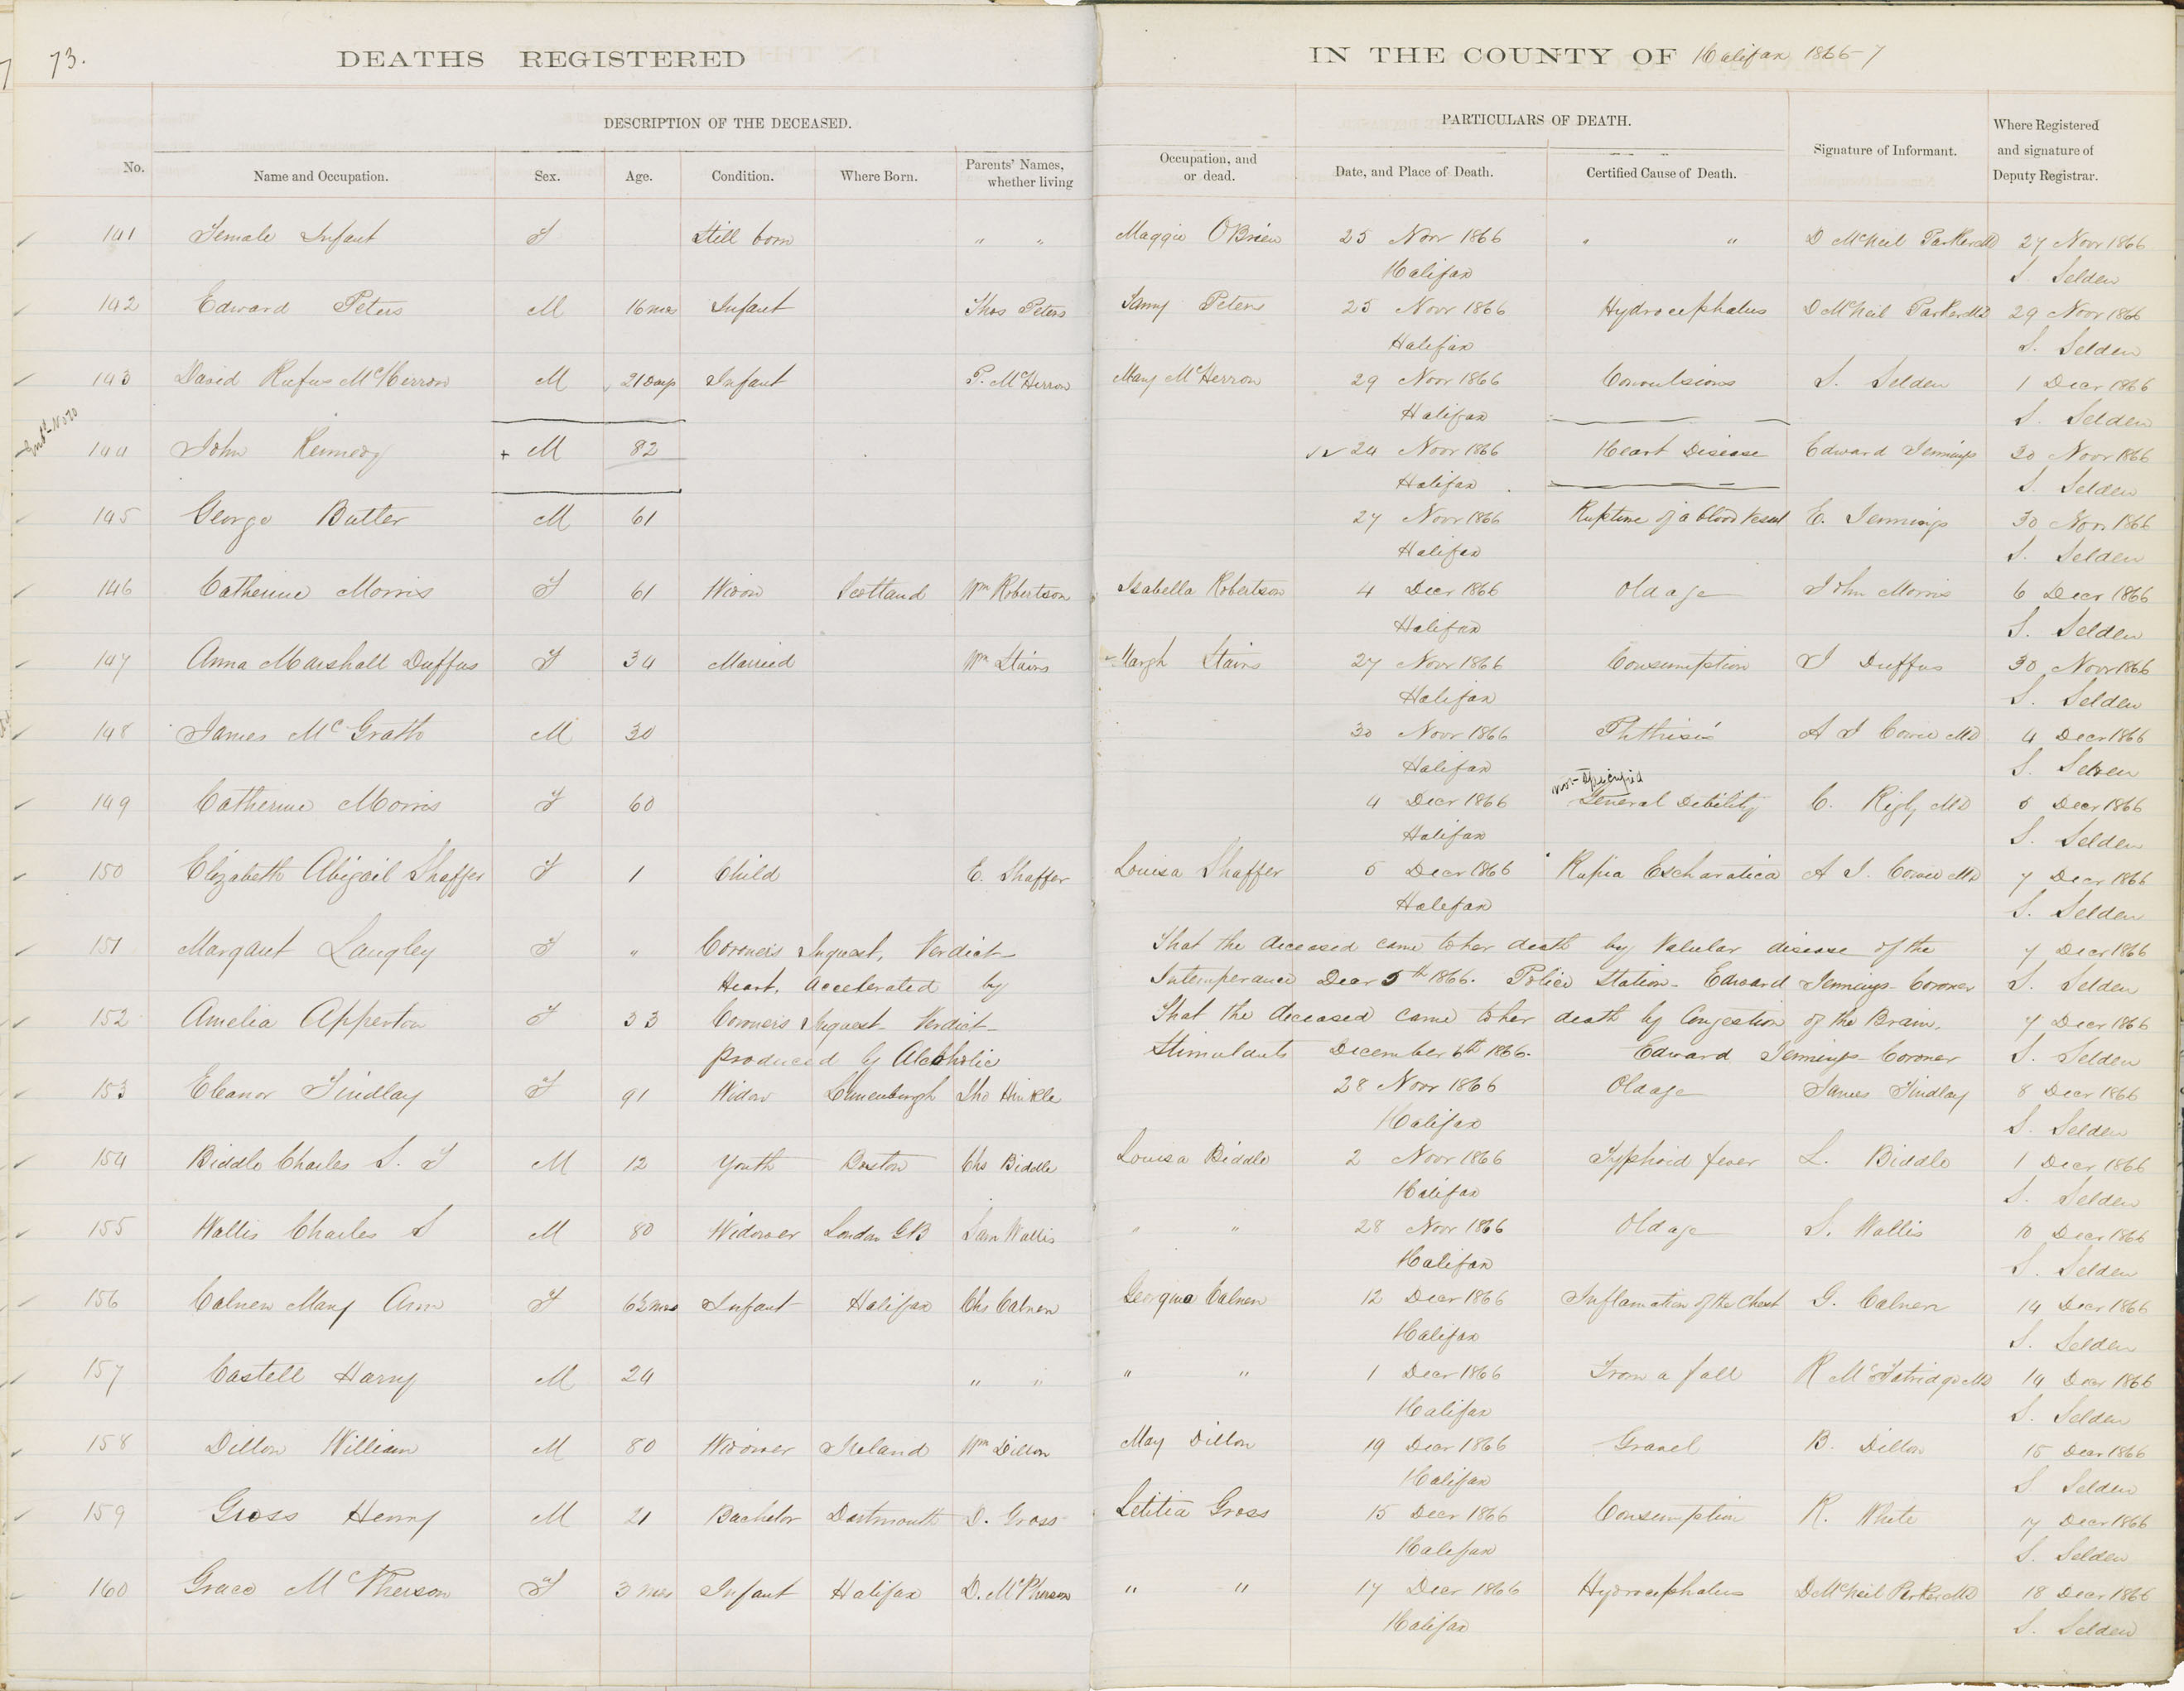 73.
DEATHS REGISTERED IN THE COUNTY OF Halifax 1866-7
DESCRIPTION OF THE DECEASED. PARTICULARS OF DEATH.
No. Name and Occupation. Sex. Age. Condition. Where Born. Parents' Names, whether living Occupation, and or dead. Date, and Place of Death. Certified Cause of Death. Signature of Informant. Where Registered and signature of Deputy Registrar.
141 Female Infant F Still born " " Maggie O'Brien 25 Novr 1866 " " D McNeil Parker MD 27 Novr 1866
Halifax S. Selden
142 Edward Peters M 16 mos Infant Thos Peters Fanny Peters 25 Novr 1866 Hydrocephalus D McNeil Parker MD 29 Novr 1866
Halifax S. Selden
143 David Rufus McHerron M 21 Days Infant P. McHerron Mary McHerron 29 Novr 1866 Convulsions S. Selden 1 Decr 1866
Halifax S. Selden
144 John Kennedy + M 82 24 Novr 1866 Heart Disease Edward Jennings 30 Novr 1866
Halifax S. Selden
145 George Butler M 61 27 Novr 1866 Rupture of a blood vessel E. Jennings 30 Novr 1866
Halifax S. Selden
146 Catherine Morris F 61 Widow Scotland Wm Robertson Isabella Robertson 4 Decr 1866 Old age John Morris 6 Decr 1866
Halifax S. Selden
147 Anna Marshall Duffus F 34 Married Wm Stairs Margh Stairs 27 Novr 1866 Consumption J Duffus 30 Novr 1866
Halifax S. Selden
148 James McGrath M 30 30 Novr 1866 Phthisis A J Cowie MD 4 Decr 1866
Halifax S. Selden
non-specified
149 Catherine Morris F 60 4 Decr 1866 General Debility C. Rigby MD 5 Decr 1866
Halifax S. Selden
150 Elizabeth Abigail Shaffer F 1 Child E. Shaffer Louisa Shaffer 5 Decr 1866 Rupia Escharatica A J. Cowie MD 7 Decr 1866
Halifax S. Selden
151 Margaret Langley F " Coroner's Inquest, Verdict- That the deceased came to her death by Valular disease of the 7 Decr 1866
Heart, Accelerated by Intemperance Decr 5th 1866. Police Station- Edward Jennings- Coroner S. Selden
152 Amelia Apperton F 33 Coroner's Inquest- Verdict- That the deceased came to her death by Congestion of the Brain, 7 Decr 1866
produced by Alcoholic Stimulants December 6th 1866. Edward Jennings- Coroner S. Selden
153 Eleanor Findlay F 91 Widow Lunenburgh Tho Hinkle 28 Novr 1866 Old age James Findlay 8 Decr 1866
Halifax S. Selden
154 Biddle Charles S. F M 12 Youth Boston Chs Biddle Louisa Biddle 2 Novr 1866 Typhoid fever L. Biddle 1 Decr 1866
Halifax S. Selden
155 Wallis Charles S M 80 Widower London GB Sam Wallis " " 28 Novr 1866 Old age S. Wallis 10 Decr 1866
Halifax S. Selden
156 Calnen Mary Ann F 6½ mos Infant Halifax Chs Calnen Georgina Calnen 12 Decr 1866 Inflamation of the Chest G. Calnen 14 Decr 1866
Halifax S. Selden
157 Castell Harry M 24 " " " " 1 Decr 1866 From a fall R McFatridge MD 14 Decr 1866
Halifax S. Selden
158 Dillon William M 80 Widower Ireland Wm Dillon May Dillon 19 Decr 1866 Gravel B. Dillon 15 Decr 1866
Halifax S Selden
159 Gross Henry M 21 Bachelor Dartmouth D. Gross Letitia Gross 15 Decr 1866 Consumption R. White 17 Decr 1866
Halifax S. Selden
160 Grace McPherson F 3 mos Infant Halifax D. McPherson " " 17 Decr 1866 Hydrocephalus D McNeil Parker MD 18 Decr 1866
Halifax S. Selden